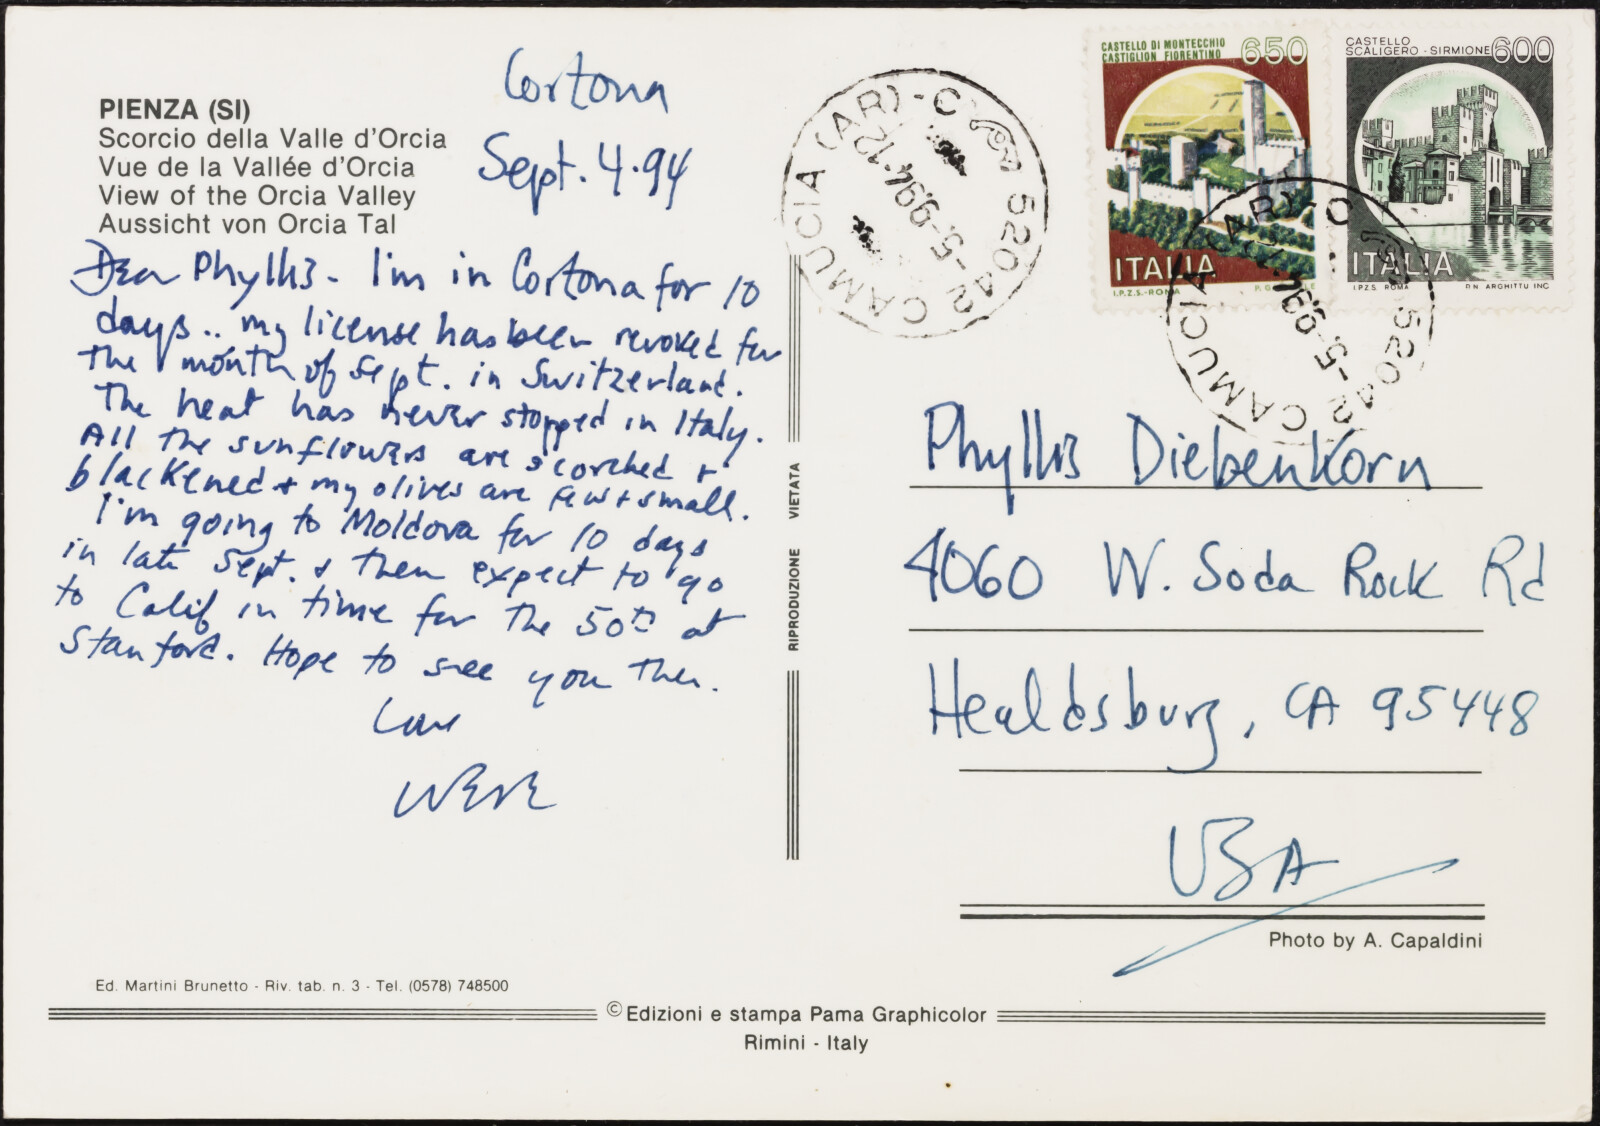 PIENZA (SI)
Scorcio della Valle d'Orcia
Vue de la Vallée d'Orcia
View of the Orcia Valley
Aussicht von Orcia Tal
Cortona
Sept. 4.94
Dear Phyllis - I'm in Cortona for 10
days.. my license has been revoked for
the month of Sept. in Switzerland.
The heat has never stopped in Italy.
All the sunflowers are scorched +
blackened + my olives are few + small.
I'm going to Moldova for 10 days
in late Sept. & then expect to go
to Calif in time for the 50th at
Stanford. Hope to see you then.
Love
Ed. Martini Brunetto - Riv. tab. n. 3 - Tel. (0578) 748500
RIPRODUZIONE VIETATA
52042 CAMUCIA (AR) - C
-5-9.94.12
CASTELLO DI MONTECCHIO
CASTIGLION FIORENTINO
650
ITALIA
I.P.Z.S. - ROMA
CASTELLO
SCALIGERO - SIRMIONE
600
ITALIA
I.P.Z.S. ROMA P.N. ARGHITTU INC
52042 CAMUCIA (AR) - C
-5-9.94
Phyllis Diebenkorn
4060 W. Soda Rock Rd
Healdsburg, CA 95448
USA
Photo by A. Capaldini
© Edizioni e stampa Pama Graphicolor
Rimini - Italy